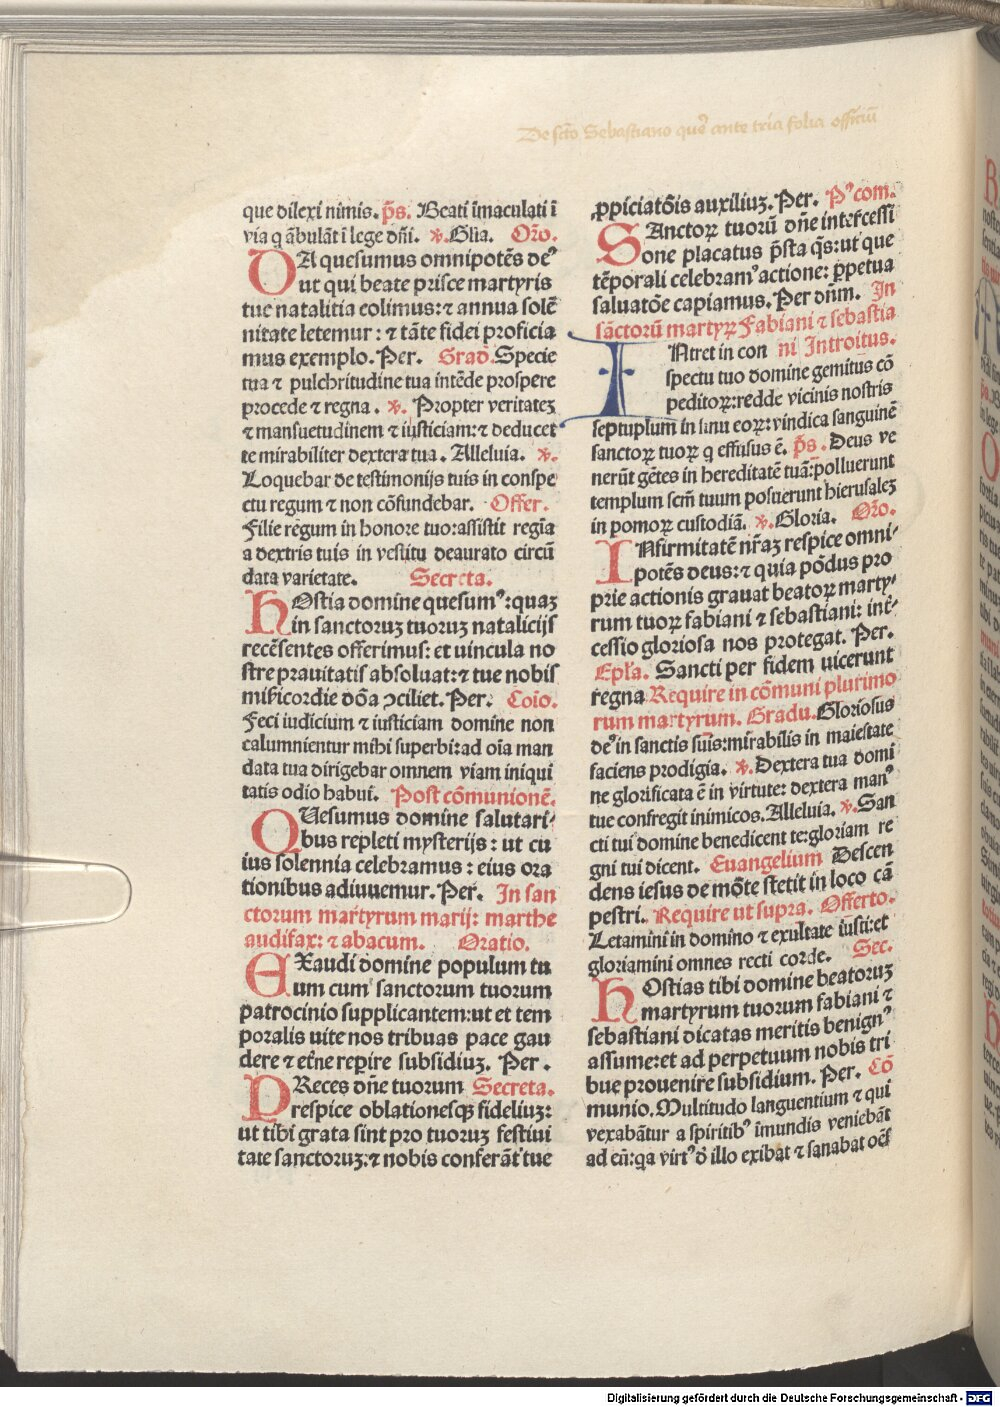 De scto Sebastiano quere ante tria folia officiū
que dilexi nimis. p̄s. Beati īmaculati ī
via q ābulāt ī lege dn̄i. ꝟ. Glia. Oro.
DA quesumus omnipotēs deꝰ
ut qui beate prisce martyris
tue natalitia colimus: ⁊ annua solē
nitate letemur: ⁊ tāte fidei proficia
mus exemplo. Per. Grad̄. Specie
tua ⁊ pulchritudine tua intēde prospere
procede ⁊ regna. ꝟ. Propter veritateꝫ
⁊ mansuetudinem ⁊ iusticiam: ⁊ deducet
te mirabiliter dextera tua. Alleluia. ꝟ.
Loquebar de testimonijs tuis in conspe
ctu regum ⁊ non cōfundebar. Offer.
Filie regum in honore tuo: assistit regīa
a dextris tuis in vestitu deaurato circū
data varietate. Secreta.
HOstia domine quesumꝰ: quaꝫ
in sanctoruꝫ tuoruꝫ natalicijs
recēsentes offerimus: et uincula no
stre prauitatis absoluat: ⁊ tue nobis
mīsicordie dōa ꝯciliet. Per. Coīo.
Feci iudicium ⁊ iusticiam domine non
calumnientur mihi superbi: ad oīa man
data tua dirigebar omnem viam iniqui
tatis odio habui. Post cōmunionē.
QUesumus domine salutari
bus repleti mysterijs: ut cu
ius solennia celebramus: eius ora
tionibus adiuuemur. Per. In san
ctorum martyrum marij: marthe
audifax: ⁊ abacum. Oratio.
EXaudi domine populum tu
um cum sanctorum tuorum
patrocinio supplicantem: ut et tem
poralis uite nos tribuas pace gau
dere ⁊ etn̄e reꝑire subsidiuꝫ. Per.
PReces dn̄e tuorum Secreta.
respice oblationesqꝫ fideliuꝫ:
ut tibi grata sint pro tuoruꝫ festiui
tate sanctoruꝫ: ⁊ nobis conferāt tue
ꝓpiciatōis auxiliuꝫ. Per. Pꝰ com.
SAnctoꝝ tuorū dn̄e intercessi
one placatus p̄sta q̄s: ut que
tēporali celebramꝰ actione: ꝑpetua
saluatōe capiamus. Per dn̄m. In
sāctorū martyꝝ Fabiani ⁊ sebastia
ni Introitus.
INtret in con
spectu tuo domine gemitus cō
peditoꝝ: redde vicinis nostris
septuplum in sinu eoꝝ: vindica sanguinē
sanctoꝝ tuoꝝ q effusus ē. p̄s. Deus ve
nerūt gētes in hereditatē tuā: polluerunt
templum scm̄ tuum posuerunt hierusaleꝫ
in pomoꝝ custodiā. ꝟ. Gloria. Oro.
INfirmitatē nr̄aꝫ respice omni
potēs deus: ⁊ quia pōdus pro
prie actionis grauat beatoꝝ marty
rum tuoꝝ fabiani ⁊ sebastiani: int̄
cessio gloriosa nos protegat. Per.
Epl̄a. Sancti per fidem uicerunt
regna Require in cōmuni plurimo
rum martyrum. Gradu. Gloriosus
deꝰ in sanctis suis: mirabilis in maiestate
faciens prodigia. ꝟ. Dextera tua domi
ne glorificata ē in virtute: dextera manꝰ
tue confregit inimicos. Alleluia. ꝟ. San
cti tui domine benedicent te: gloriam re
gni tui dicent. Euangelium Descen
dens iesus de mōte stetit in loco cā
pestri. Require ut supra. Offerto.
Letamini in domino ⁊ exultate iusti: et
gloriamini omnes recti corde. Sec.
HOstias tibi domine beatoruꝫ
martyrum tuorum fabiani ⁊
sebastiani dicatas meritis benignꝰ
assume: et ad perpetuum nobis tri
bue prouenire subsidium. Per. Cō
munio. Multitudo languentium ⁊ qui
vexabātur a spiritibꝰ īmundis veniebāt
ad eū: qa virtꝰ d̄ illo exibat ⁊ sanabat oēs
Digitalisierung gefördert durch die Deutsche Forschungsgemeinschaft - DFG